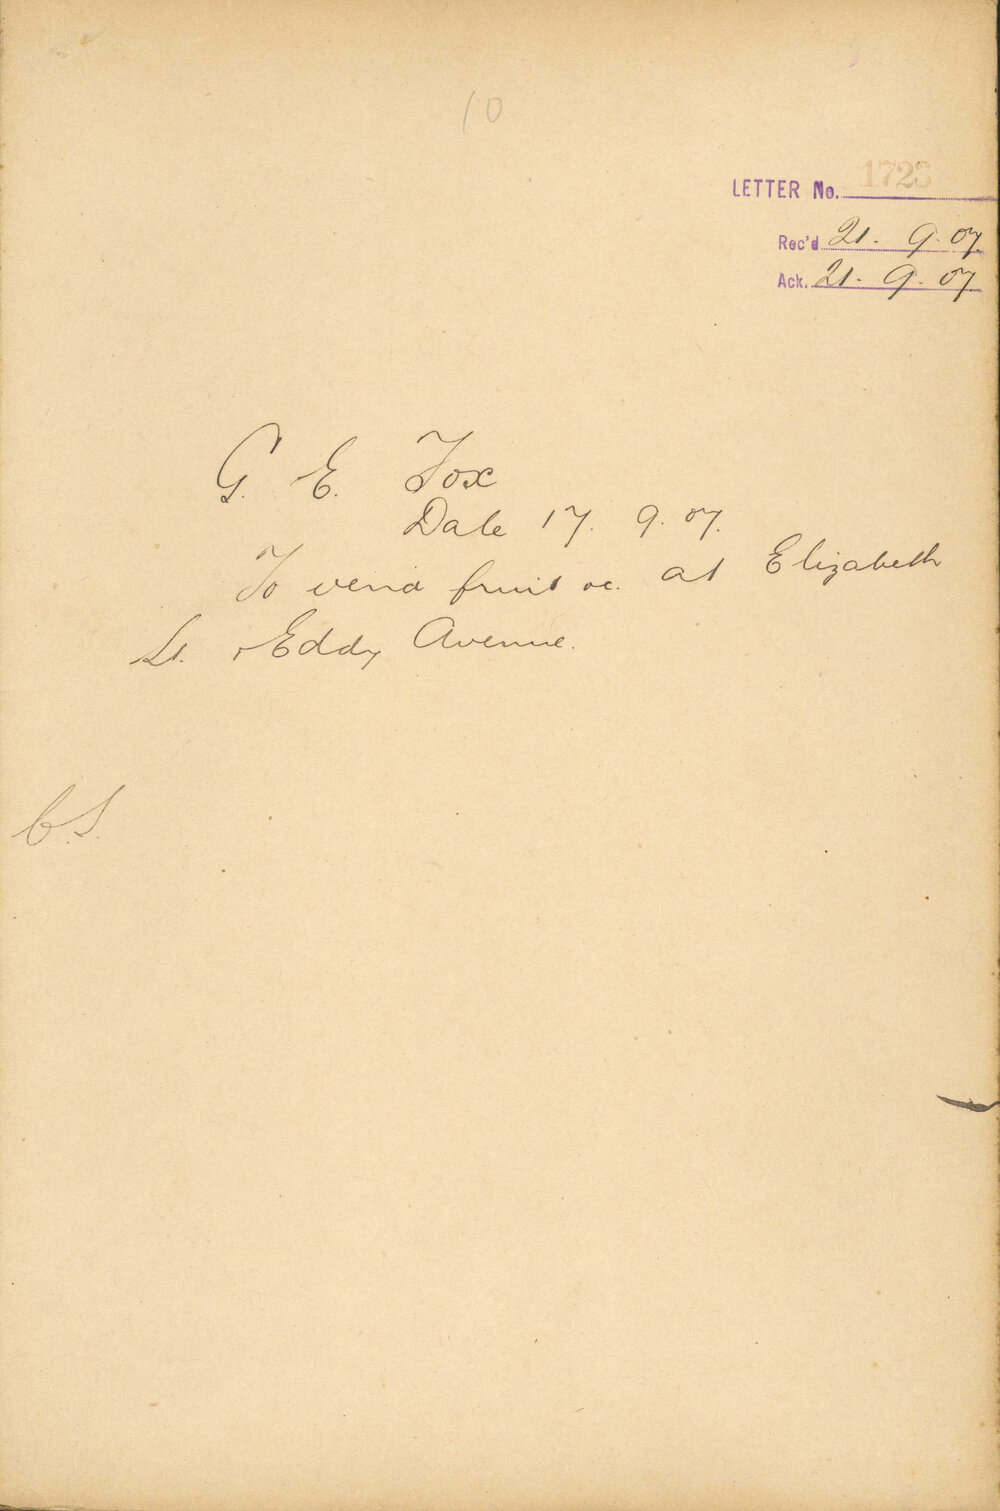 10
LETTER No. 1723
Rec'd 21. 9. 07
Ack. 21. 9. 07
G. E. Fox
Date 17. 9. 07.
To vend fruit &c. at Elizabeth
St. & Eddy Avenue.
C.S.